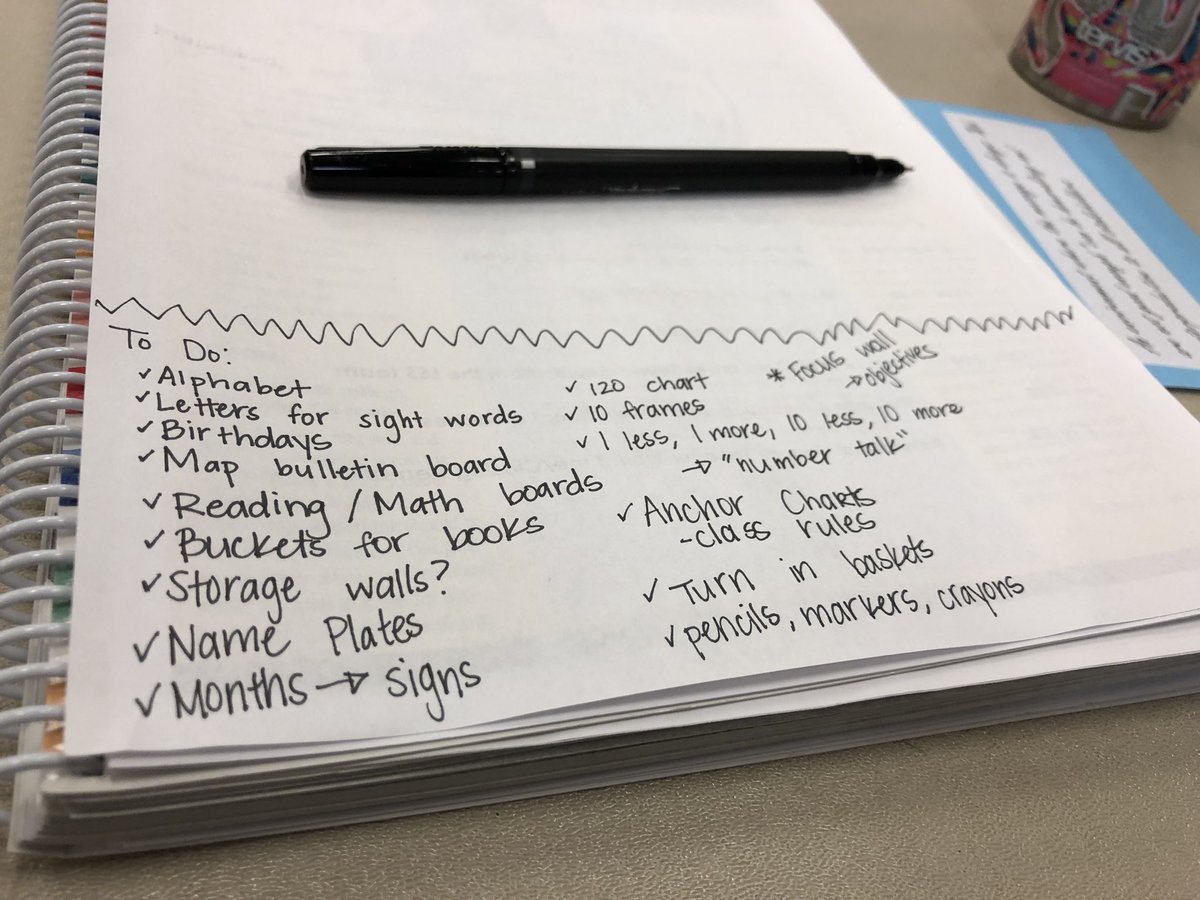 To Do:
✓Alphabet
✓Letters for sight words
✓Birthdays
✓Map bulletin board
✓Reading/Math boards
✓Buckets for books
✓Storage walls?
✓Name Plates
✓Months→signs
✓120 chart
✓10 frames
✓1 less, 1 more, 10 less, 10 more
→"number talk"
✓Anchor Charts
-class rules
✓Turn in baskets
✓pencils, markers, crayons
*Focus wall
→objectives
tervis